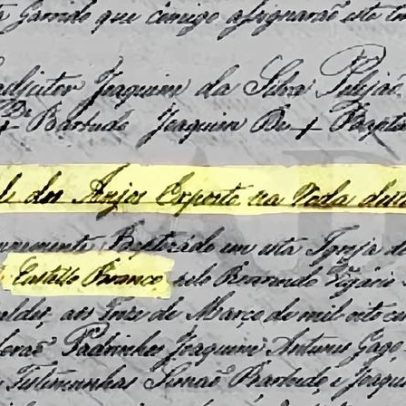 Garrido que comigo assignarão este
adjutor Joaquim da Silva Pelejão
Barbudo Joaquim De + Baptis
dos Anjos Exposto na Roda desta
Baptizado em esta Igreja de
Castello Branco pelo Reverendo Vigario
aos Onze de Março de mil oito cen
Padrinhos Joaquim Antunes Gago
Testemunhas Simão Barbudo, e Joaqu